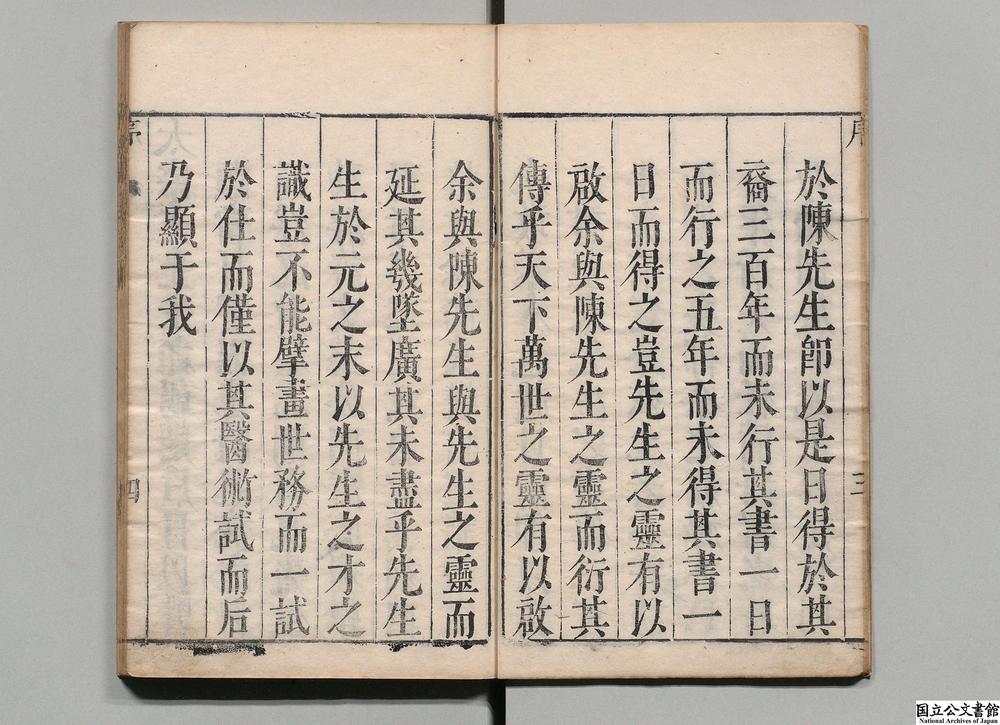 於陳先生卽以是日得於其
裔三百年而未行其書一日
而行之五年而未得其書一
日而得之豈先生之靈有以
啟余與陳先生之靈而衍其
傳乎天下萬世之靈有以啟
余與陳先生與先生之靈而
延其幾墜廣其未盡乎先生
生於元之末以先生之才之
識豈不能擘畫世務而一試
於仕而僅以其醫術試而后
乃顯于我
序
三
四
国立公文書館
National Archives of Japan